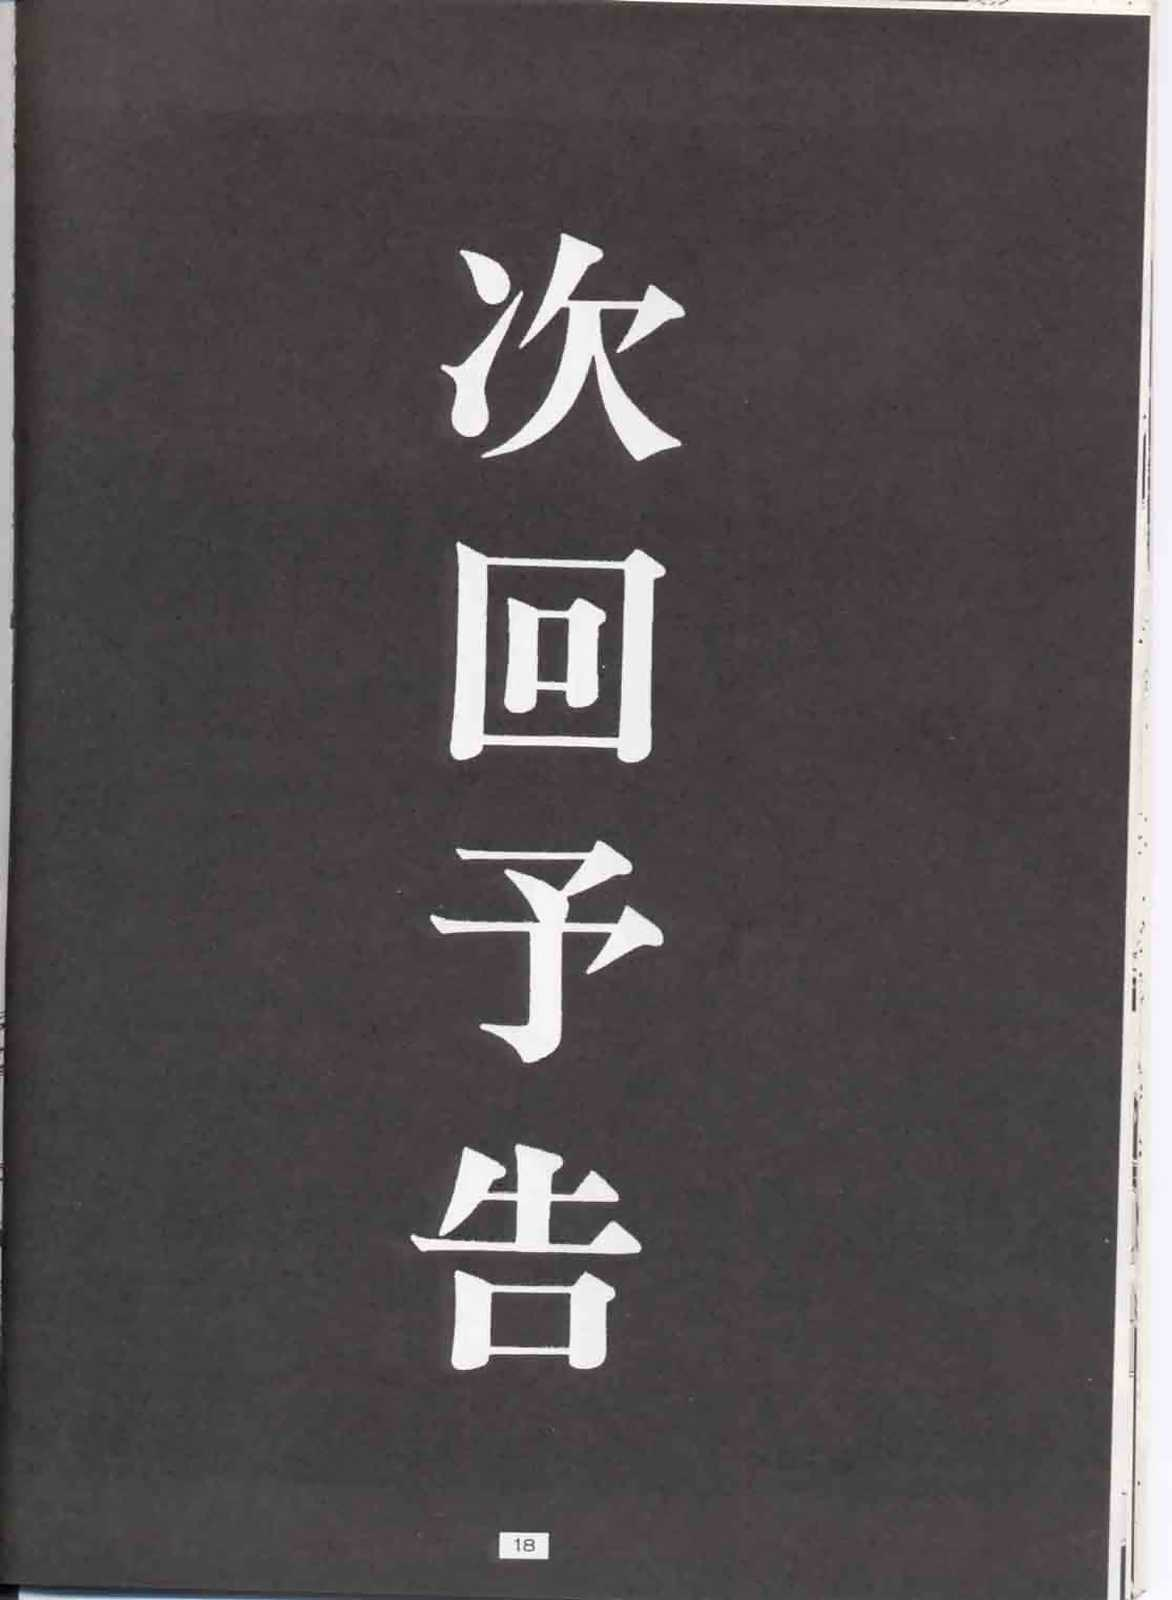 次回予告
18